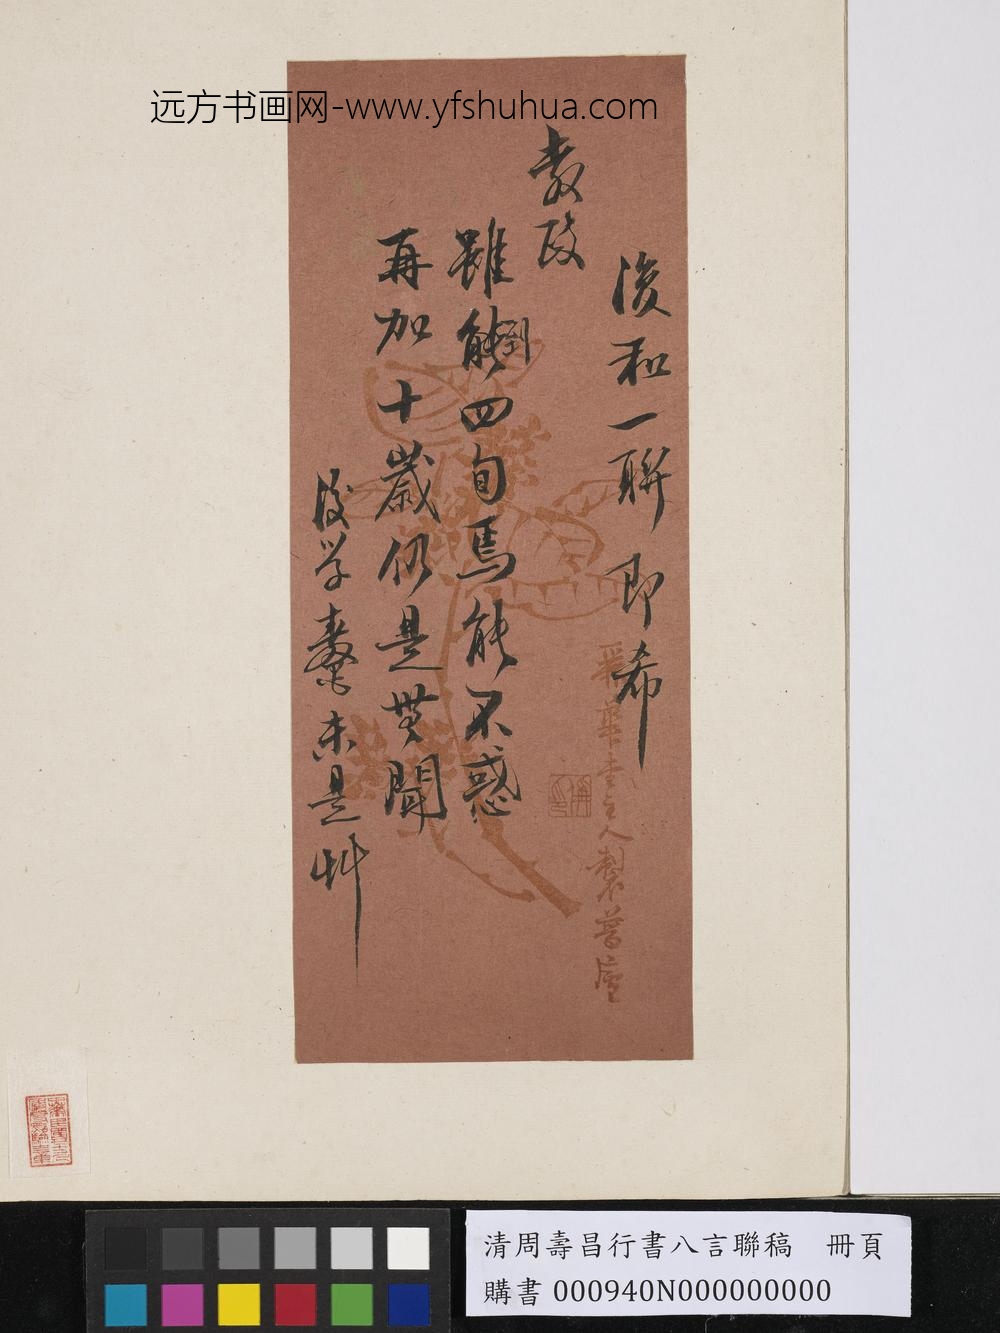 远方书画网-www.yfshuhua.com
復和一聯即希
教政
雖能到四旬焉能不惑
再加十歲仍是無聞
後学壽未是艸
主人製
清周壽昌行書八言聯稿 冊頁
購書 000940N000000000